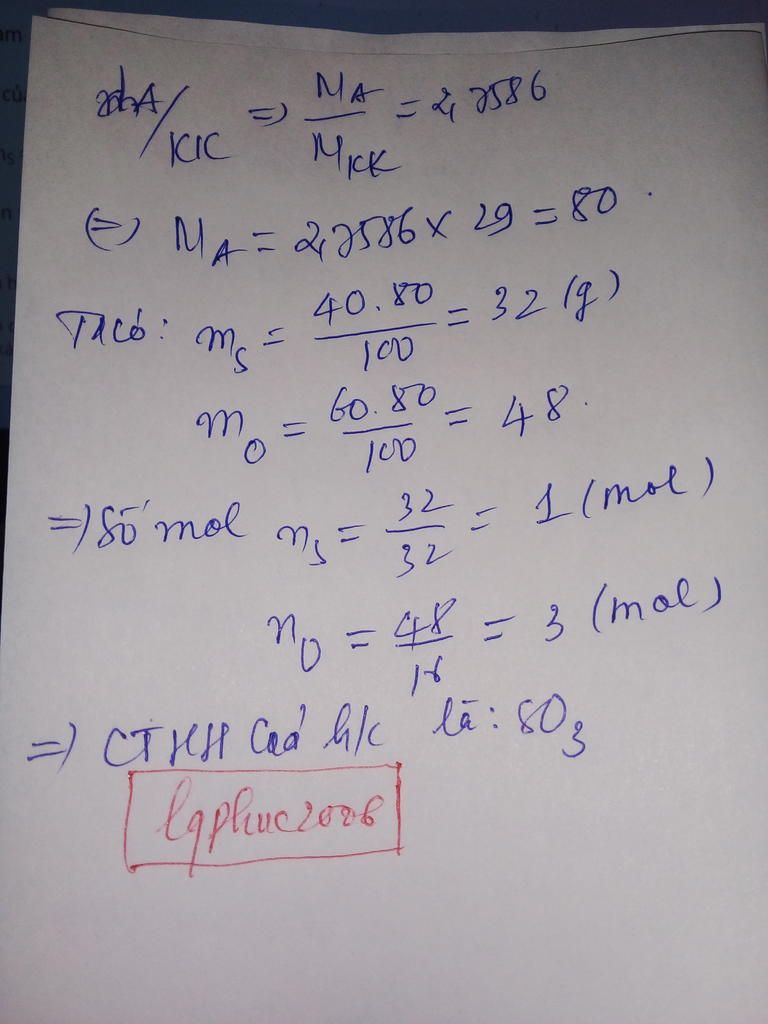 dA/KK => MA/MKK = 2,7586
(=) MA = 2,7586 × 29 = 80
Ta có: mS = 40.80/100 = 32 (g)
mO = 60.80/100 = 48
=) Số mol nS = 32/32 = 1 (mol)
nO = 48/16 = 3 (mol)
=) CTHH của h/c là: SO3
lqphuc2006